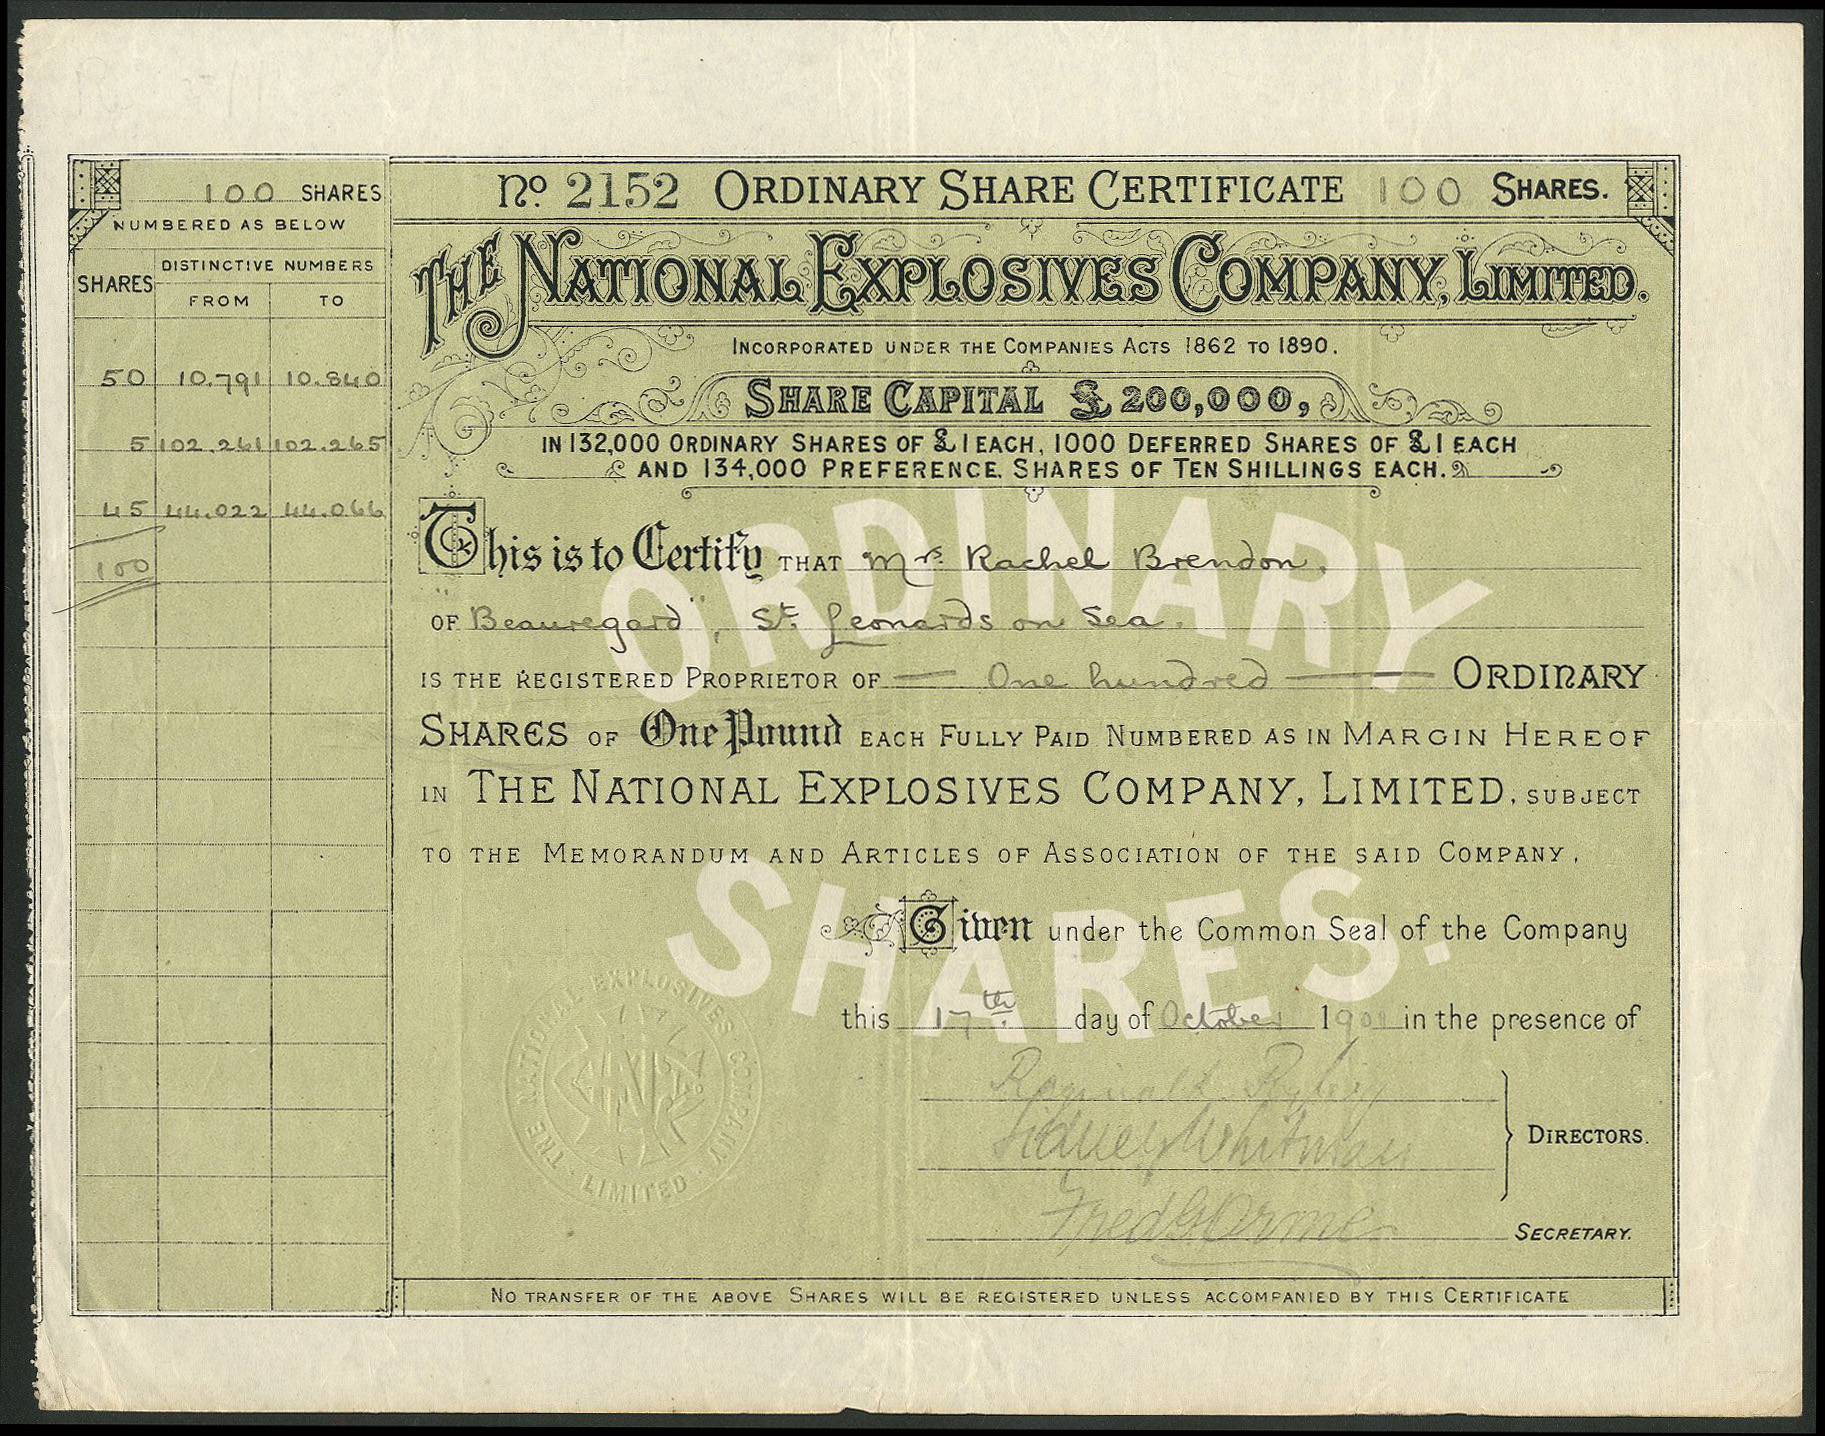 100 SHARES
NUMBERED AS BELOW
SHARES
DISTINCTIVE NUMBERS
FROM TO
50 10.791 10.840
5 102.261 102.265
45 44.022 44.066
100
No. 2152 ORDINARY SHARE CERTIFICATE 100 SHARES.
THE NATIONAL EXPLOSIVES COMPANY, LIMITED.
INCORPORATED UNDER THE COMPANIES ACTS 1862 TO 1890.
SHARE CAPITAL £200,000,
IN 132,000 ORDINARY SHARES OF £1 EACH, 1000 DEFERRED SHARES OF £1 EACH
AND 134,000 PREFERENCE. SHARES OF TEN SHILLINGS EACH.
ORDINARY
This is to Certify THAT Mrs. Rachel Brendon.
OF "Beauregard", St. Leonards on Sea.
IS THE REGISTERED PROPRIETOR OF — One hundred — ORDINARY
SHARES OF One Pound EACH FULLY PAID NUMBERED AS IN MARGIN HEREOF
IN THE NATIONAL EXPLOSIVES COMPANY, LIMITED, SUBJECT
TO THE MEMORANDUM AND ARTICLES OF ASSOCIATION OF THE SAID COMPANY,
SHARES.
Given under the Common Seal of the Company
this 17th. day of October in the presence of
THE NATIONAL EXPLOSIVES COMPANY LIMITED
Reginald
Sidney Whitman
DIRECTORS.
Fred G Orme
SECRETARY.
NO TRANSFER OF THE ABOVE SHARES WILL BE REGISTERED UNLESS ACCOMPANIED BY THIS CERTIFICATE